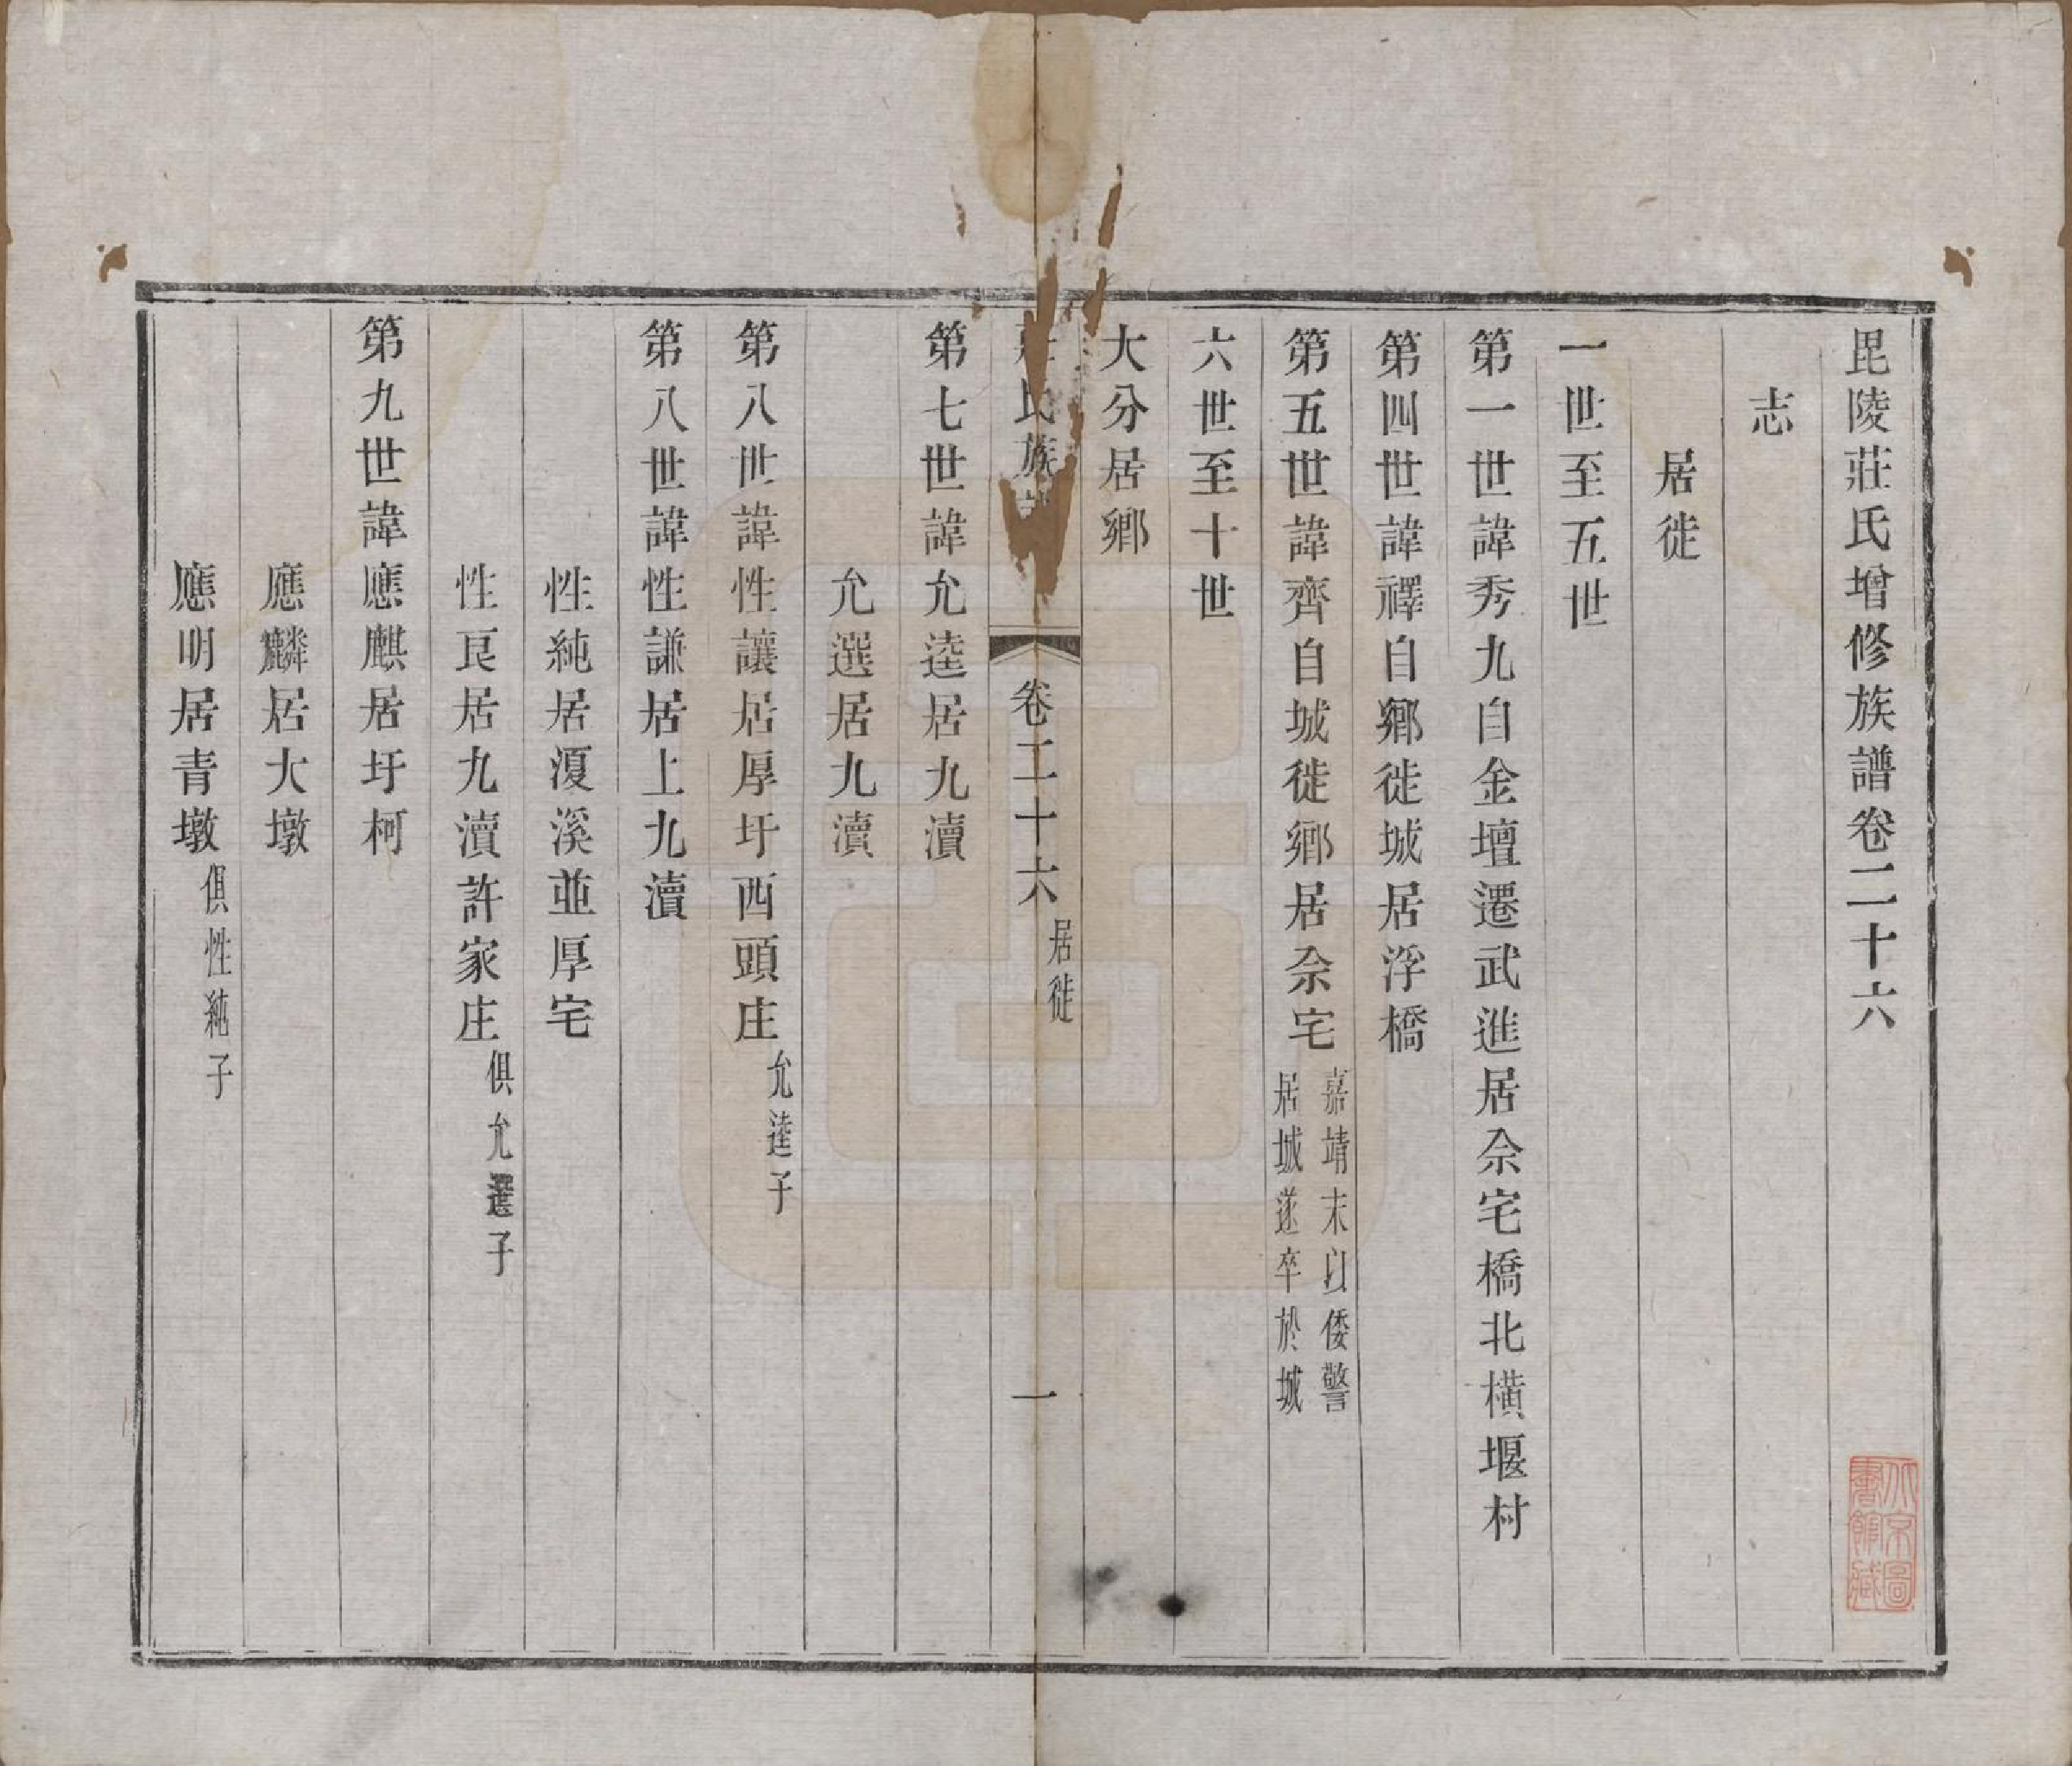 毘陵莊氏增修族譜卷二十六
志
居徙
一世至五世
第一世諱秀九自金壇遷武進居佘宅橋北橫堰村
第四世諱襗自鄉徙城居浮橋
第五世諱齊自城徙鄉居佘宅嘉靖末以倭警
居城遂卒於城
六世至十世
大分居鄉
莊氏族 卷二十六 居徙 一
第七世諱允逵居九瀆
允選居九瀆
第八世諱性讓居厚圩西頭庄允逵子
第八世諱性謙居上九瀆
性純居澓溪並厚宅
性良居九瀆許家庄俱允選子
第九世諱應麒居圩柯
應麟居大墩
應明居青墩俱性純子
北京圖
書館藏